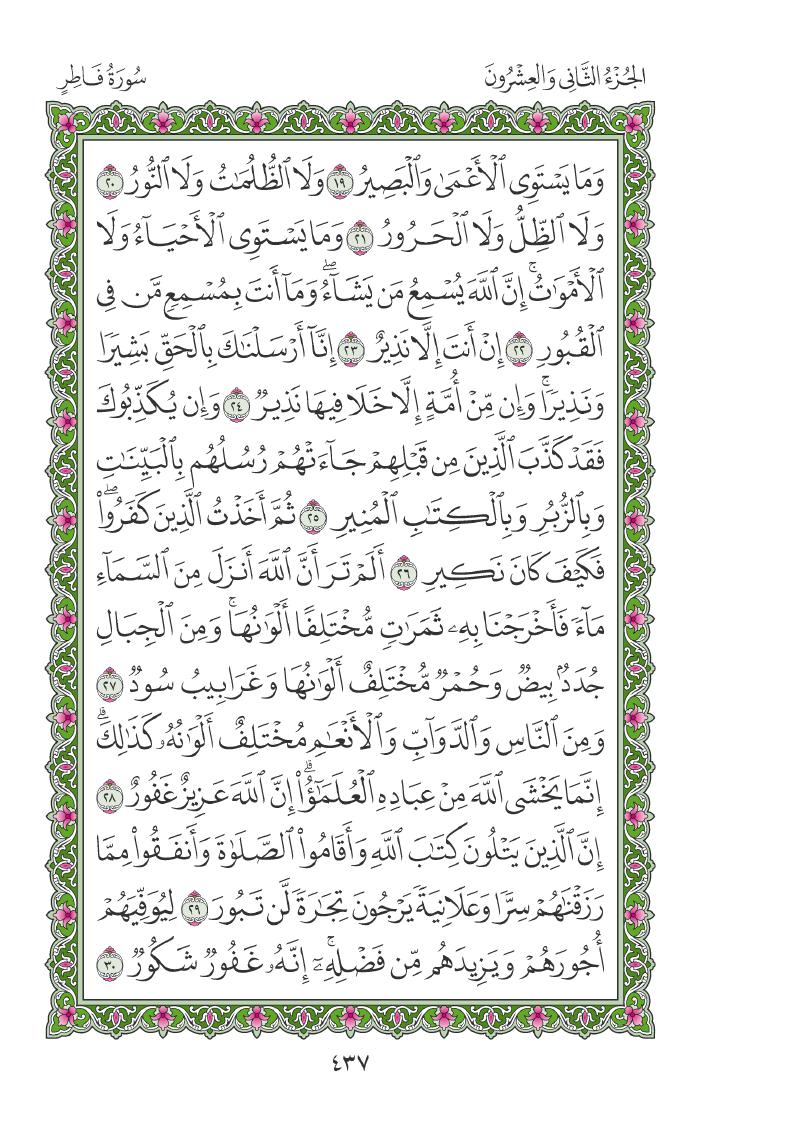 الجُزْءُ الثَّانِي وَالعِشْرُونَ
سُورَةُ فَاطِرٍ
وَمَا يَسْتَوِى ٱلْأَعْمَىٰ وَٱلْبَصِيرُ ١٩ وَلَا ٱلظُّلُمَـٰتُ وَلَا ٱلنُّورُ ٢٠
وَلَا ٱلظِّلُّ وَلَا ٱلْحَرُورُ ٢١ وَمَا يَسْتَوِى ٱلْأَحْيَآءُ وَلَا
ٱلْأَمْوَٰتُ ۚ إِنَّ ٱللَّهَ يُسْمِعُ مَن يَشَآءُ ۖ وَمَآ أَنتَ بِمُسْمِعٍ مَّن فِى
ٱلْقُبُورِ ٢٢ إِنْ أَنتَ إِلَّا نَذِيرٌ ٢٣ إِنَّآ أَرْسَلْنَـٰكَ بِٱلْحَقِّ بَشِيرًا
وَنَذِيرًا ۚ وَإِن مِّنْ أُمَّةٍ إِلَّا خَلَا فِيهَا نَذِيرٌ ٢٤ وَإِن يُكَذِّبُوكَ
فَقَدْ كَذَّبَ ٱلَّذِينَ مِن قَبْلِهِمْ جَآءَتْهُمْ رُسُلُهُم بِٱلْبَيِّنَـٰتِ
وَبِٱلزُّبُرِ وَبِٱلْكِتَـٰبِ ٱلْمُنِيرِ ٢٥ ثُمَّ أَخَذْتُ ٱلَّذِينَ كَفَرُوا۟ ۖ
فَكَيْفَ كَانَ نَكِيرِ ٢٦ أَلَمْ تَرَ أَنَّ ٱللَّهَ أَنزَلَ مِنَ ٱلسَّمَآءِ
مَآءً فَأَخْرَجْنَا بِهِۦ ثَمَرَٰتٍ مُّخْتَلِفًا أَلْوَٰنُهَا ۚ وَمِنَ ٱلْجِبَالِ
جُدَدٌۢ بِيضٌ وَحُمْرٌ مُّخْتَلِفٌ أَلْوَٰنُهَا وَغَرَابِيبُ سُودٌ ٢٧
وَمِنَ ٱلنَّاسِ وَٱلدَّوَآبِّ وَٱلْأَنْعَـٰمِ مُخْتَلِفٌ أَلْوَٰنُهُۥ كَذَٰلِكَ ۗ
إِنَّمَا يَخْشَى ٱللَّهَ مِنْ عِبَادِهِ ٱلْعُلَمَـٰٓؤُا۟ ۗ إِنَّ ٱللَّهَ عَزِيزٌ غَفُورٌ ٢٨
إِنَّ ٱلَّذِينَ يَتْلُونَ كِتَـٰبَ ٱللَّهِ وَأَقَامُوا۟ ٱلصَّلَوٰةَ وَأَنفَقُوا۟ مِمَّا
رَزَقْنَـٰهُمْ سِرًّا وَعَلَانِيَةً يَرْجُونَ تِجَـٰرَةً لَّن تَبُورَ ٢٩ لِيُوَفِّيَهُمْ
أُجُورَهُمْ وَيَزِيدَهُم مِّن فَضْلِهِۦٓ ۚ إِنَّهُۥ غَفُورٌ شَكُورٌ ٣٠
٤٣٧